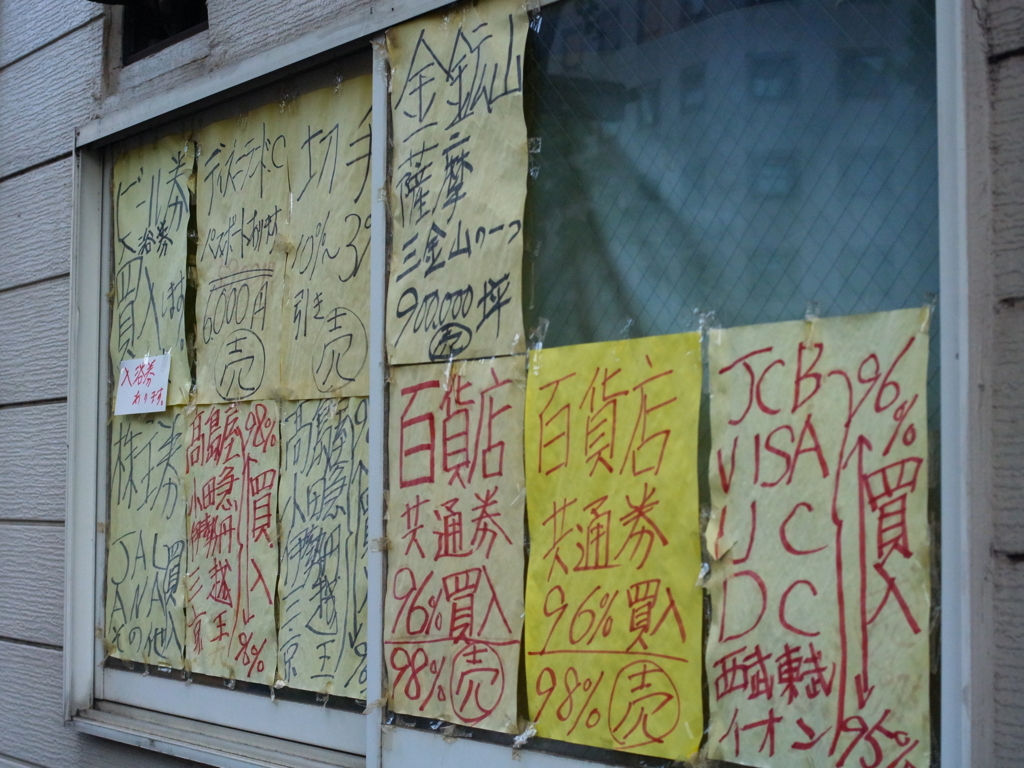 ビール券
入発券
買入
入発券
あります
ディズニーランドC
パスポートあります
6000円
売
切手
10%
3%
引き
売
金鉱山
薩摩
三金山の一つ
900,000坪
売
株主券
JAL
ANA
その他
買入
高島屋
小田急
伊勢丹
三越
京王
98%
買入
%
高島屋
小田急
伊勢丹
三越
京王
百貨店
共通券
96%買入
98%売
百貨店
共通券
96%買入
98%売
JCB
VISA
UC
DC
西武東武
イオン
96%
買入
95%